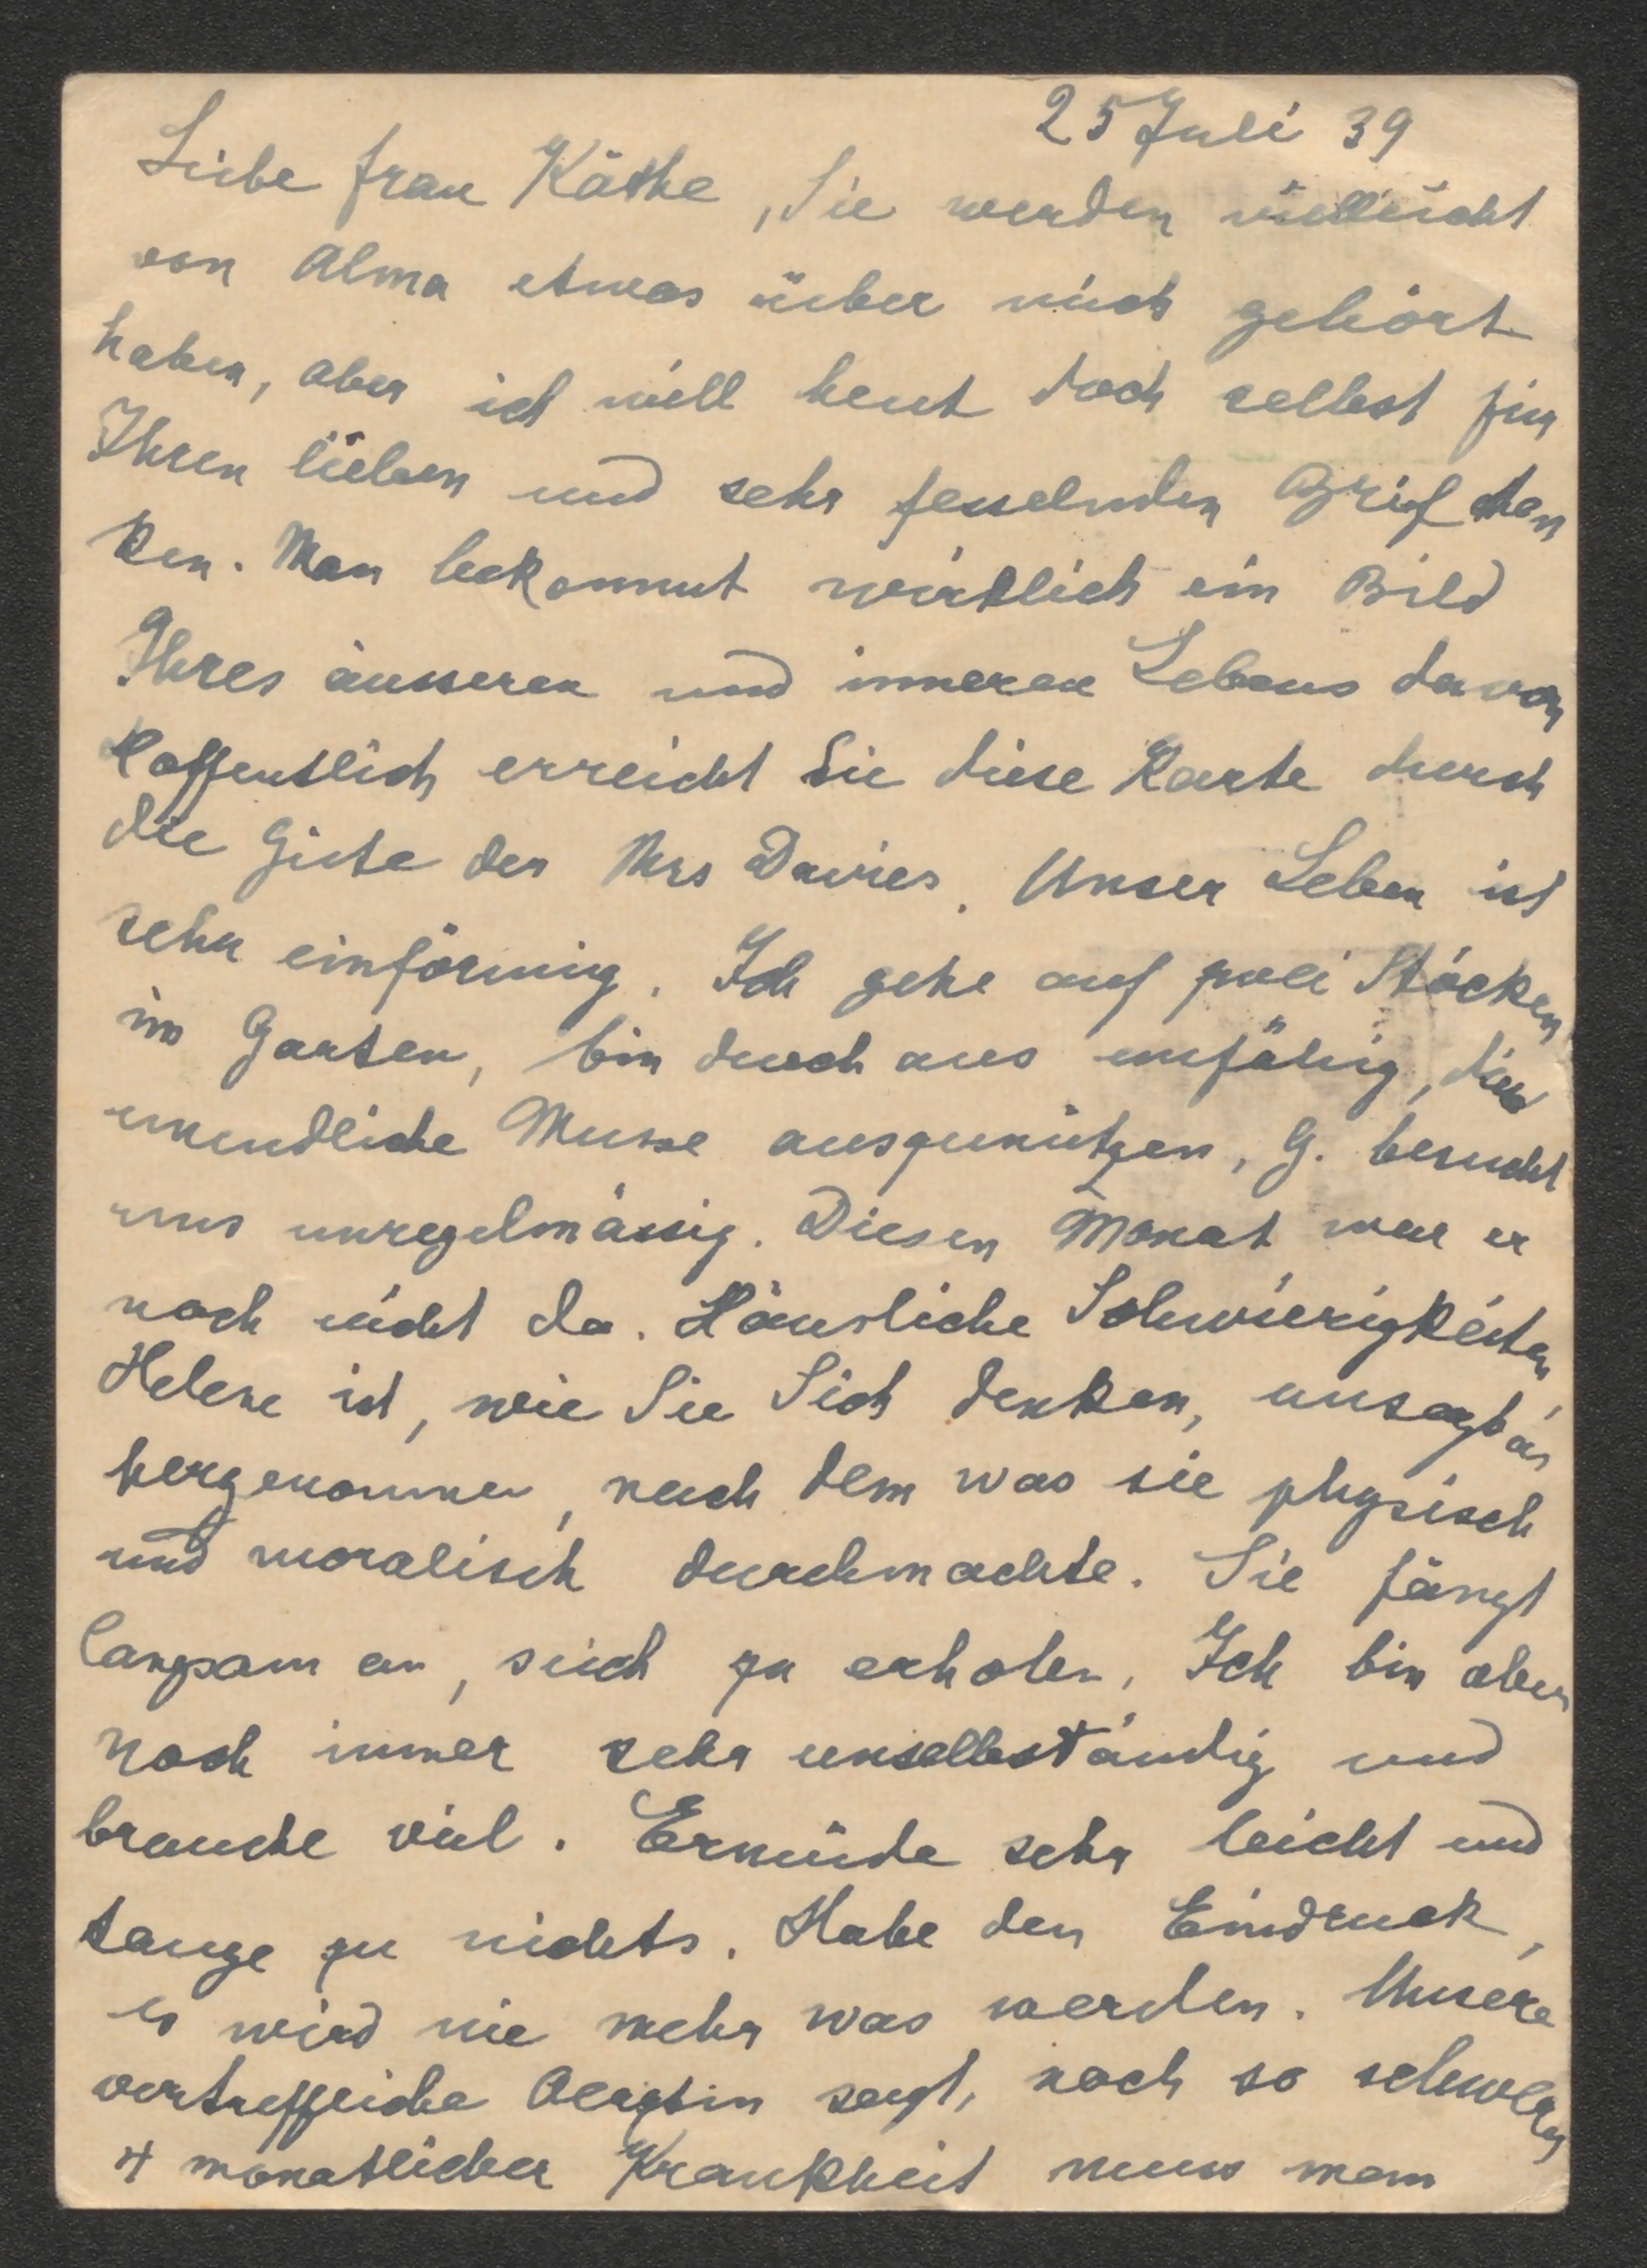 25 Juli 39
Liebe Frau Käthe, Sie werden vielleicht
von Alma etwas über mich gehört
haben, aber ich will heut doch selbst für
Ihren lieben und sehr fesselnden Brief dan
ken. Man bekommt wirklich ein Bild
Ihres äusseren und inneren Lebens davon
Hoffentlich erreicht Sie diese Karte durch
die Güte der Mrs Davies. Unser Leben ist
sehr einförmig. Ich gehe auf zwei Stöcken
im Garten, bin durch aus unfähig, diese
unendliche Musse auszunützen, G. besucht
uns unregelmässig. Diesen Monat war er
noch nicht da. Häusliche Schwierigkeiten
Helene ist, wie Sie Sich denken, unsagbar
hergenommen, nach dem was sie physisch
und moralisch durchmachte. Sie fängt
langsam an, sich zu erholen. Ich bin aber
noch immer sehr unselbständig und
brauche viel. Ermüde sehr leicht und
tauge zu nichts. Habe den Eindruck,
es wird nie mehr was werden. Unsere
vortreffliche Aerztin sagt, nach so schwerer
4 monatlicher Krankheit muss man